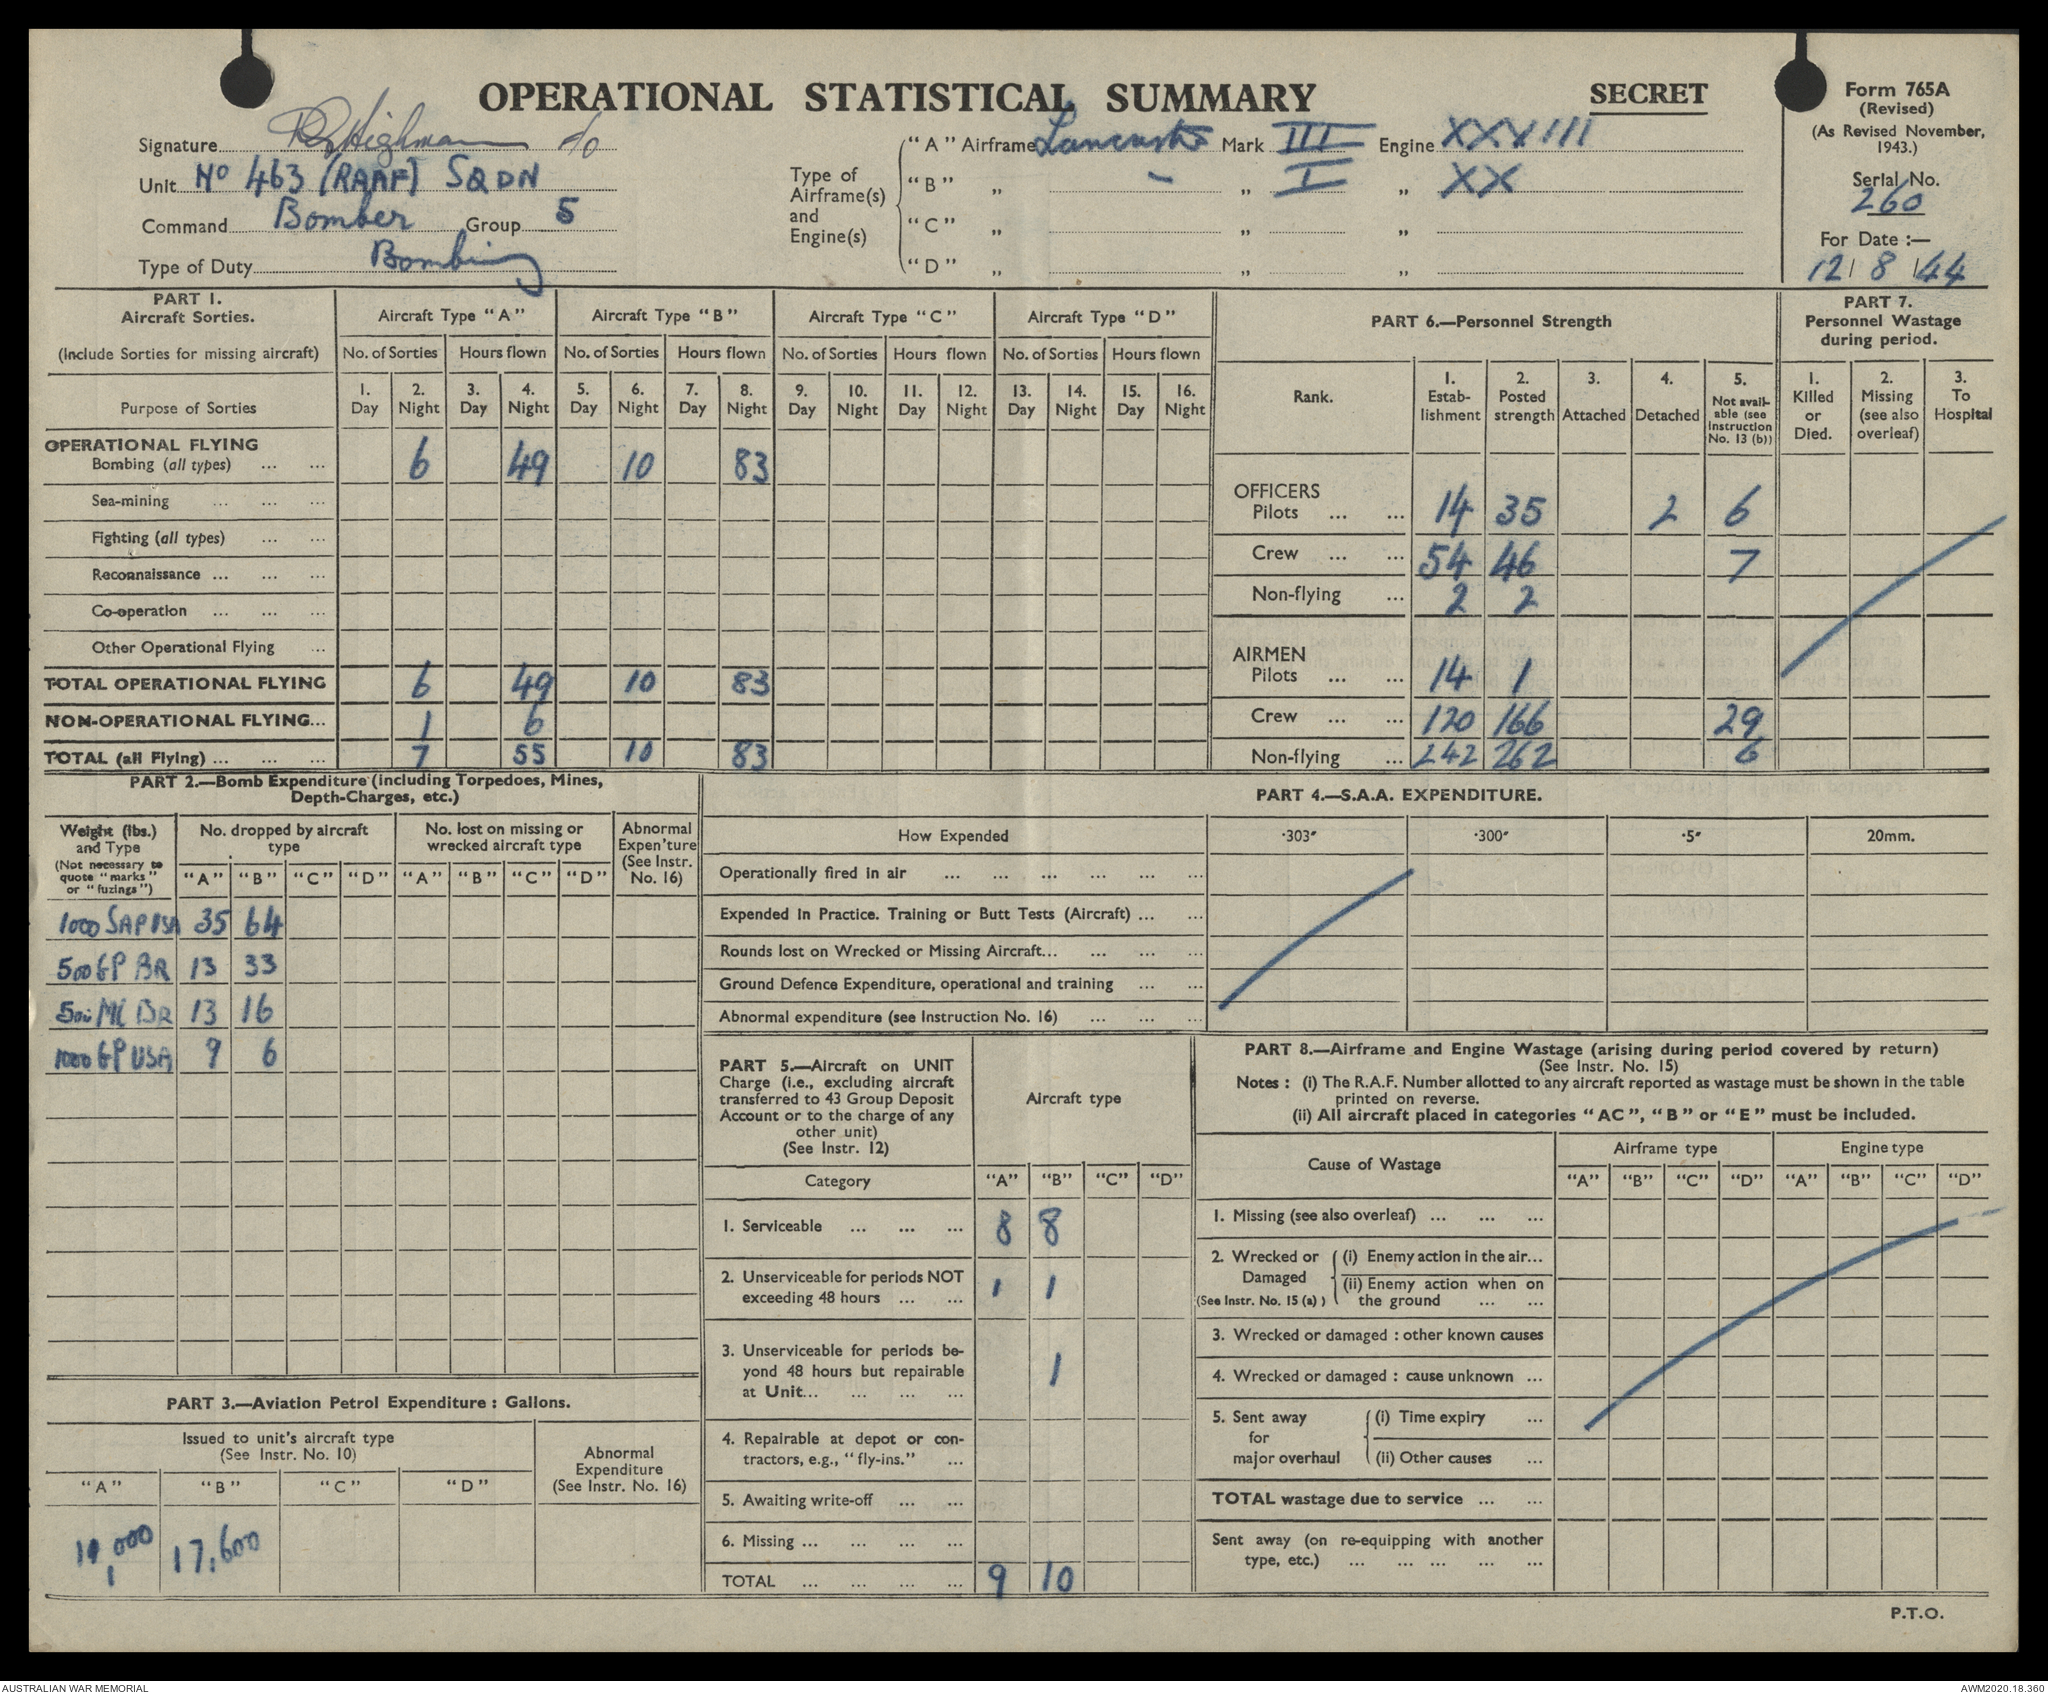 OPERATIONAL STATISTICAL SUMMARY
SECRET
Form 765A
(Revised)
(As Revised November, 1943.)
Serial No.
260
For Date :—
12/ 8 /44
Signature Highman f/o
Unit No 463 (RAAF) SQDN
Command Bomber Group 5
Type of Duty Bombing
Type of Airframe(s) and Engine(s)
"A" Airframe Lancaster Mark III Engine XXXIIII
"B" „ - „ I „ XX
"C" „ „ „
"D" „ „ „
PART 1.
Aircraft Sorties.
(Include Sorties for missing aircraft)
Purpose of Sorties
Aircraft Type "A" Aircraft Type "B" Aircraft Type "C" Aircraft Type "D"
No. of Sorties Hours flown No. of Sorties Hours flown No. of Sorties Hours flown No. of Sorties Hours flown
1. Day 2. Night 3. Day 4. Night 5. Day 6. Night 7. Day 8. Night 9. Day 10. Night 11. Day 12. Night 13. Day 14. Night 15. Day 16. Night
OPERATIONAL FLYING
Bombing (all types) ... ... 6 49 10 83
Sea-mining ... ... ...
Fighting (all types) ... ...
Reconnaissance ... ... ...
Co-operation ... ... ...
Other Operational Flying ...
TOTAL OPERATIONAL FLYING 6 49 10 83
NON-OPERATIONAL FLYING... 1 6
TOTAL (all Flying) ... ... ... 7 55 10 83
PART 6.—Personnel Strength
Rank.
1. Establishment
2. Posted strength
3. Attached
4. Detached
5. Not available (see Instruction No. 13 (b))
OFFICERS
Pilots ... ... 14 35 2 6
Crew ... ... 54 46 7
Non-flying ... 2 2
AIRMEN
Pilots ... ... 14 1
Crew ... ... 120 166 29
Non-flying ... 242 262 6
PART 7.
Personnel Wastage during period.
1. Killed or Died.
2. Missing (see also overleaf)
3. To Hospital
PART 2.—Bomb Expenditure (including Torpedoes, Mines,
Depth-Charges, etc.)
Weight (lbs.) and Type
(Not necessary to quote "marks" or "fuzings")
No. dropped by aircraft type
No. lost on missing or wrecked aircraft type
Abnormal Expen'ture (See Instr. No. 16)
"A" "B" "C" "D" "A" "B" "C" "D"
1000 SAP USA 35 64
500 GP BR 13 33
500 MC BR 13 16
1000 GP USA 9 6
PART 3.—Aviation Petrol Expenditure : Gallons.
Issued to unit's aircraft type
(See Instr. No. 10)
Abnormal Expenditure (See Instr. No. 16)
"A" "B" "C" "D"
11,000 17,600
PART 4.—S.A.A. EXPENDITURE.
How Expended ·303" ·300" ·5" 20mm.
Operationally fired in air ... ... ... ... ... ...
Expended In Practice. Training or Butt Tests (Aircraft) ... ...
Rounds lost on Wrecked or Missing Aircraft... ... ... ...
Ground Defence Expenditure, operational and training ... ...
Abnormal expenditure (see Instruction No. 16) ... ... ...
PART 5.—Aircraft on UNIT
Charge (i.e., excluding aircraft
transferred to 43 Group Deposit
Account or to the charge of any
other unit)
(See Instr. 12)
Aircraft type
Category "A" "B" "C" "D"
1. Serviceable ... ... ... 8 8
2. Unserviceable for periods NOT
exceeding 48 hours ... ... 1 1
3. Unserviceable for periods be-
yond 48 hours but repairable
at Unit... ... ... ... 1
4. Repairable at depot or con-
tractors, e.g., "fly-ins." ...
5. Awaiting write-off ... ...
6. Missing ... ... ... ...
TOTAL ... ... ... ... 9 10
PART 8.—Airframe and Engine Wastage (arising during period covered by return)
(See Instr. No. 15)
Notes : (i) The R.A.F. Number allotted to any aircraft reported as wastage must be shown in the table
printed on reverse.
(ii) All aircraft placed in categories "AC", "B" or "E" must be included.
Cause of Wastage
Airframe type Engine type
"A" "B" "C" "D" "A" "B" "C" "D"
1. Missing (see also overleaf) ... ... ...
2. Wrecked or Damaged (See Instr. No. 15 (a) )
(i) Enemy action in the air...
(ii) Enemy action when on
the ground ... ...
3. Wrecked or damaged : other known causes
4. Wrecked or damaged : cause unknown ...
5. Sent away for major overhaul
(i) Time expiry ...
(ii) Other causes ...
TOTAL wastage due to service ... ...
Sent away (on re-equipping with another
type, etc.) ... ... ... ... ...
P.T.O.
AUSTRALIAN WAR MEMORIAL
AWM2020.18.360